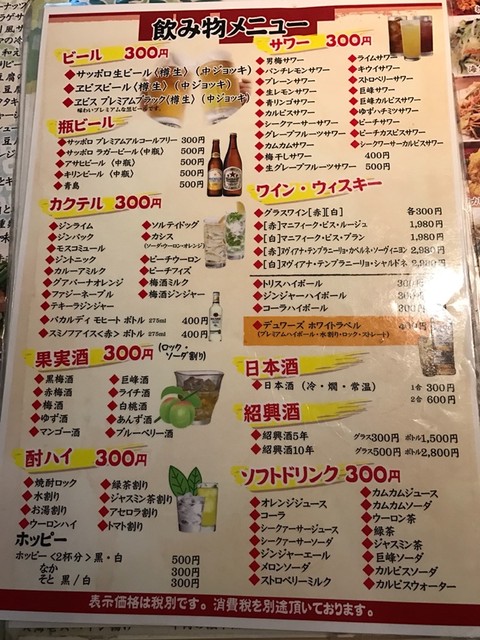 飲み物メニュー
ビール 300円
サッポロ生ビール〈樽生〉(中ジョッキ)
ヱビスビール〈樽生〉(中ジョッキ)
ヱビス プレミアムブラック〈樽生〉(中ジョッキ)
瓶ビール
サッポロ プレミアムアルコールフリー 300円
サッポロ ラガービール(中瓶) 500円
アサヒビール(中瓶) 500円
キリンビール(中瓶) 500円
青島 500円
カクテル 300円
ジンライム
ジンバック
モスコミュール
ジントニック
カルーアミルク
グアバーナオレンジ
ファジーネーブル
テキーラジンジャー
ソルティドッグ
カシス
(ソーダ・ウーロン・オレンジ)
ピーチウーロン
ピーチフィズ
梅酒ミルク
梅酒ジンジャー
バカルディ モヒート ボトル 275ml 400円
スミノフアイス<赤> ボトル 275ml 400円
果実酒 300円 (ロック・ソーダ割り)
黒梅酒
赤梅酒
梅酒
ゆず酒
マンゴー酒
巨峰酒
ライチ酒
白桃酒
あんず酒
ブルーベリー酒
酎ハイ 300円
焼酎ロック
水割り
お湯割り
ウーロンハイ
緑茶割り
ジャスミン茶割り
アセロラ割り
トマト割り
ホッピー
ホッピー<2杯分>黒・白 500円
なか 300円
そと 黒/白 300円
サワー 300円
男梅サワー
パンチレモンサワー
プレーンサワー
生レモンサワー
青リンゴサワー
カルピスサワー
シークァーサーサワー
グレープフルーツサワー
カムカムサワー
梅干しサワー 400円
生グレープフルーツサワー 500円
ライムサワー
キウイサワー
ストロベリーサワー
巨峰サワー
巨峰カルピスサワー
ゆず・ハチミツサワー
ピーチサワー
ピーチカルピスサワー
シークワーサーカルピスサワー
ワイン・ウィスキー
グラスワイン[赤][白] 各300円
[赤]マニフィーク・ビス・ルージュ 1,980円
[白]マニフィーク・ビス・ブラン 1,980円
[赤]ヌヴィアナ・テンプラニーリョ・カベルネ・ソーヴィニヨン 2,980円
[白]ヌヴィアナ・テンプラニーリョ・シャルドネ 2,980円
トリスハイボール 300円
ジンジャーハイボール 300円
コーラハイボール 300円
デュワーズ ホワイトラベル 400円
(プレミアムハイボール・水割り・ロック・ストレート)
日本酒
日本酒 (冷・燗・常温) 1合 300円
2合 600円
紹興酒
紹興酒5年 グラス300円 ボトル1,500円
紹興酒10年 グラス500円 ボトル2,800円
ソフトドリンク 300円
オレンジジュース
コーラ
シークァーサージュース
シークァーサーソーダ
ジンジャーエール
メロンソーダ
ストロベリーミルク
カムカムジュース
カムカムソーダ
ウーロン茶
緑茶
ジャスミン茶
巨峰ソーダ
カルピスソーダ
カルピスウォーター
表示価格は税別です。消費税を別途頂いております。